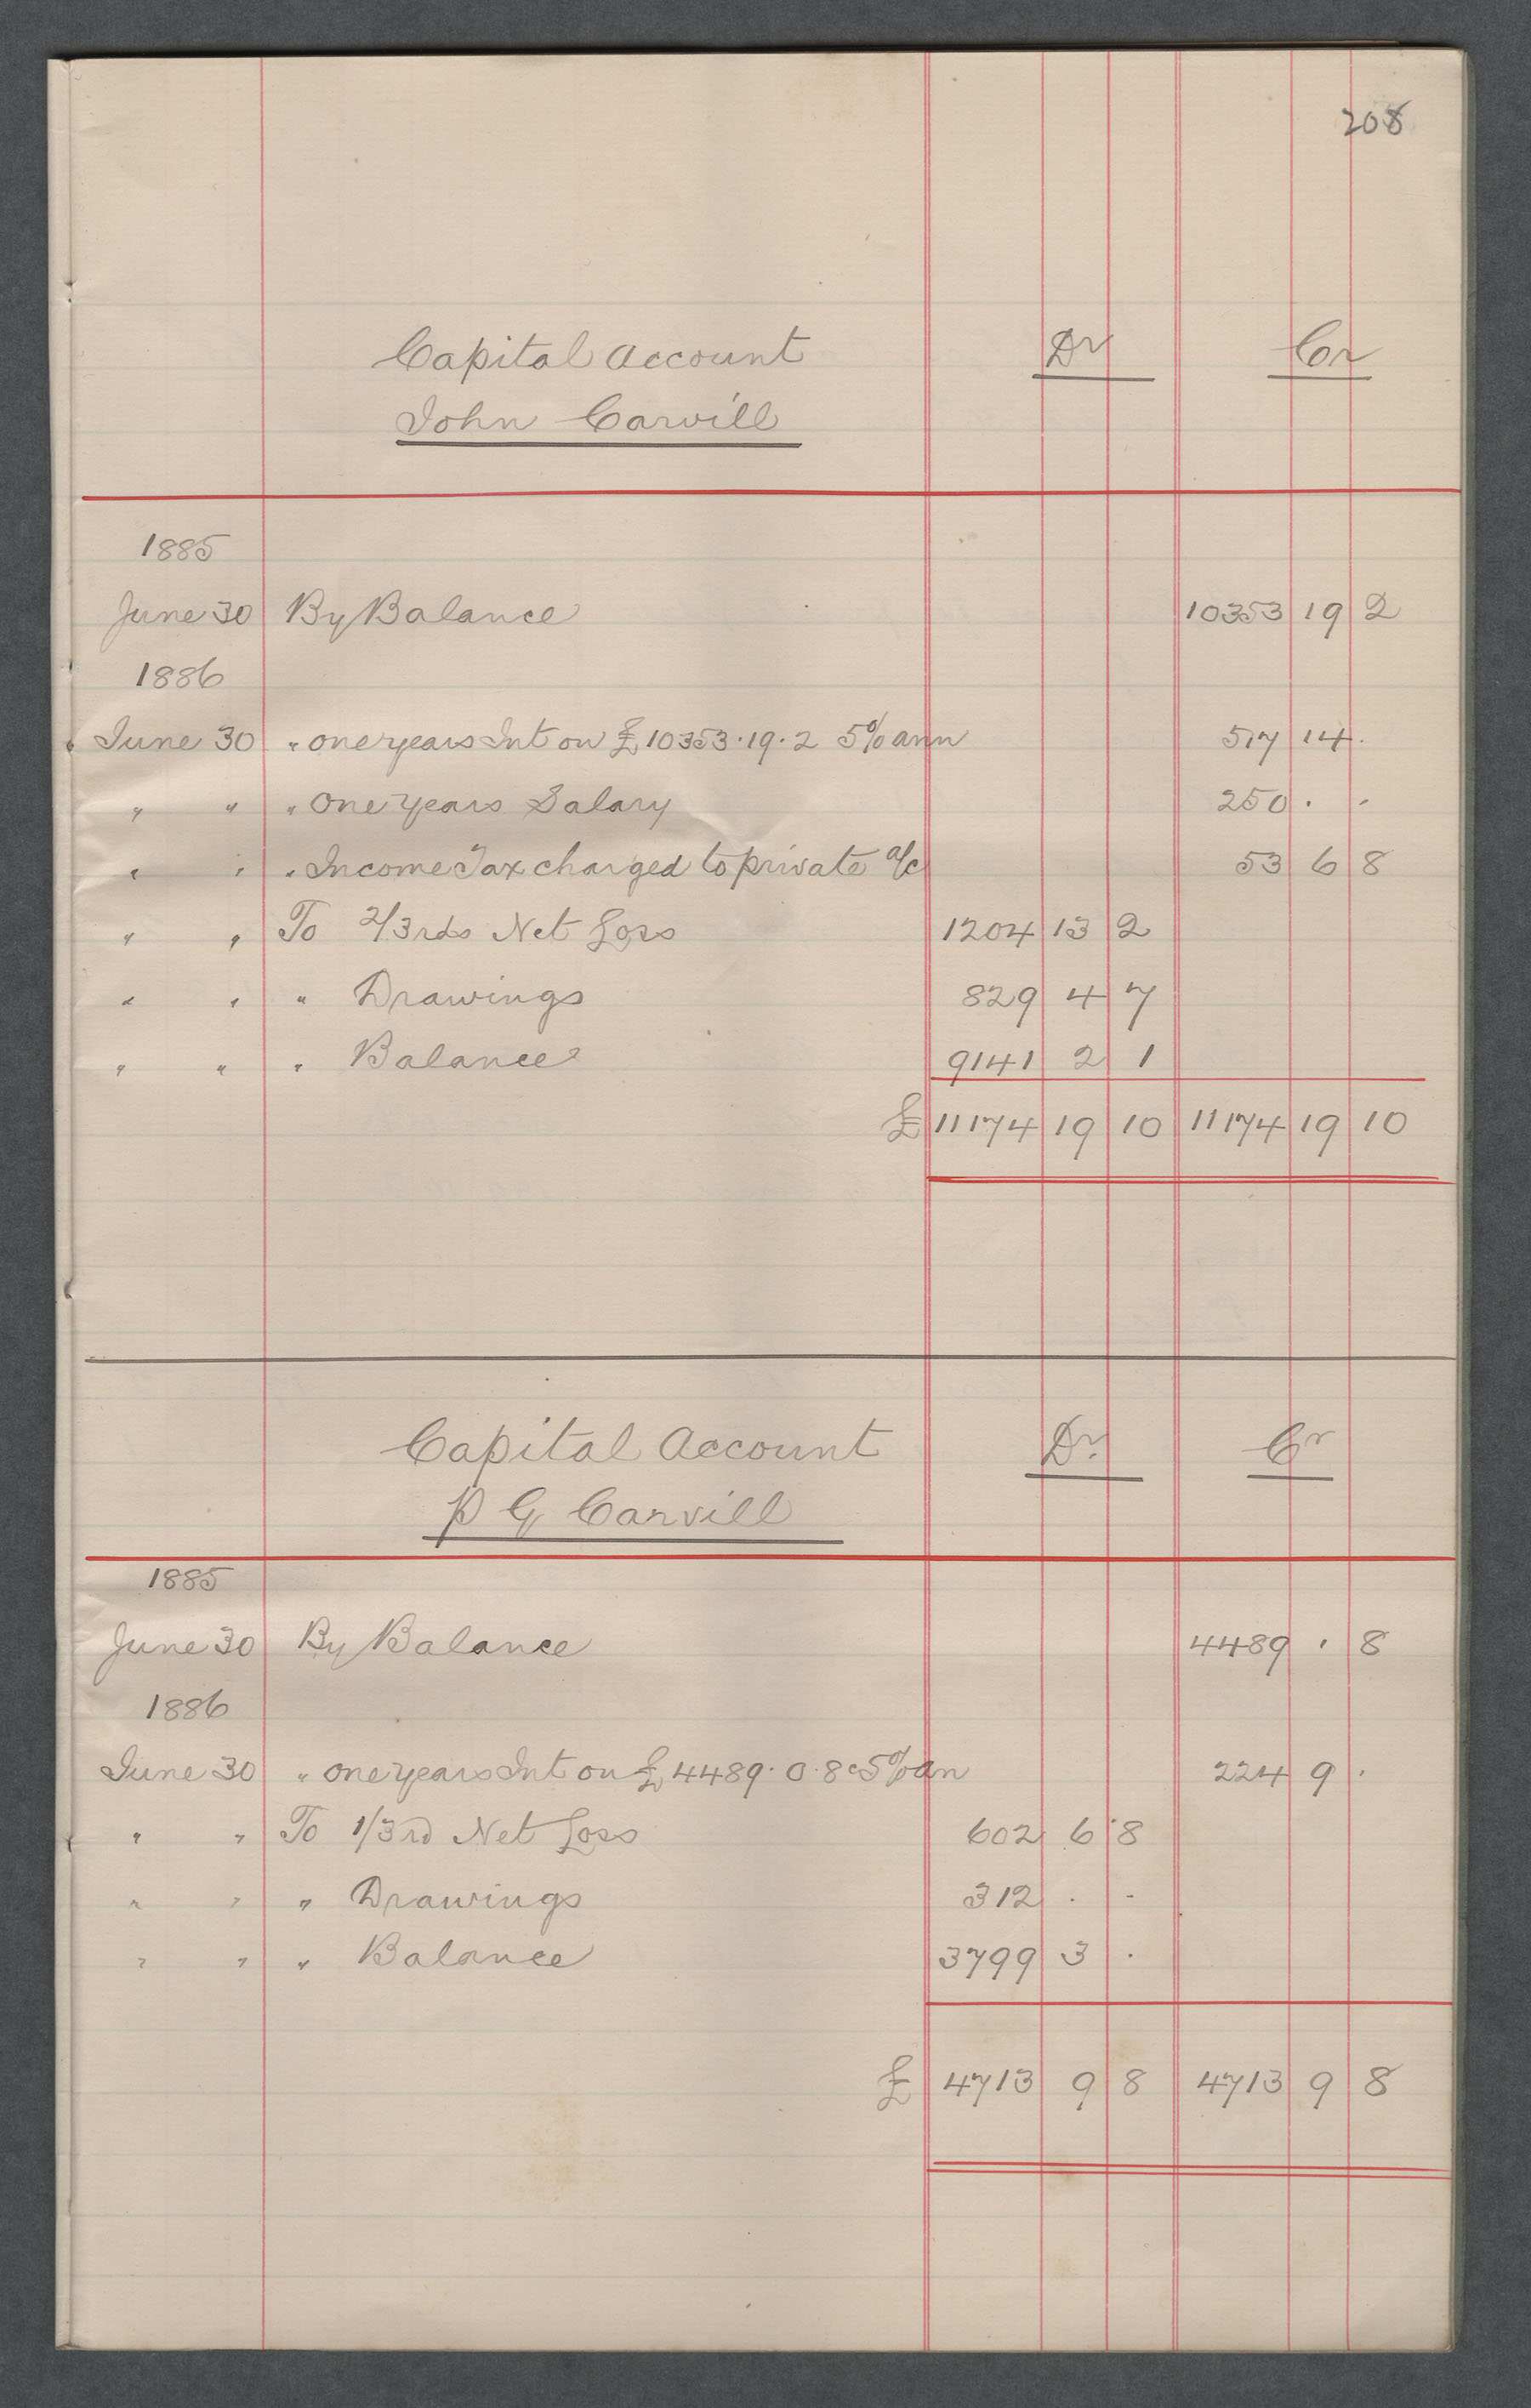 208
Capital Account Dr Cr
John Carvill
1885
June 30 By Balance 10353 19 2
1886
June 30 " one years Int on £10353.19.2 5% ann 517 14 .
" " " One Years Salary 250 . .
" " " Income Tax charged to private a/c 53 6 8
" " To 2/3rds Net Loss 1204 13 2
" " " Drawings 829 4 7
" " " Balance 9141 2 1
£ 11174 19 10 11174 19 10
Capital Account Dr. Cr
P G Carvill
1885
June 30 By Balance 4489 . 8
1886
June 30 " one years Int on £4489.0.8 c 5% an 224 9 .
" " To 1/3rd Net Loss 602 6 8
" " " Drawings 312 . -
" " " Balance 3799 3 .
£ 4713 9 8 4713 9 8